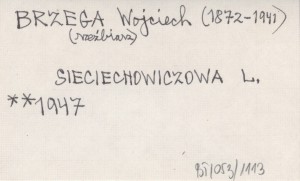 BRZEGA Wojciech (1872-1941)
(rzeźbiarz)
SIECIECHOWICZOWA L.
**1947
BS/053/1113